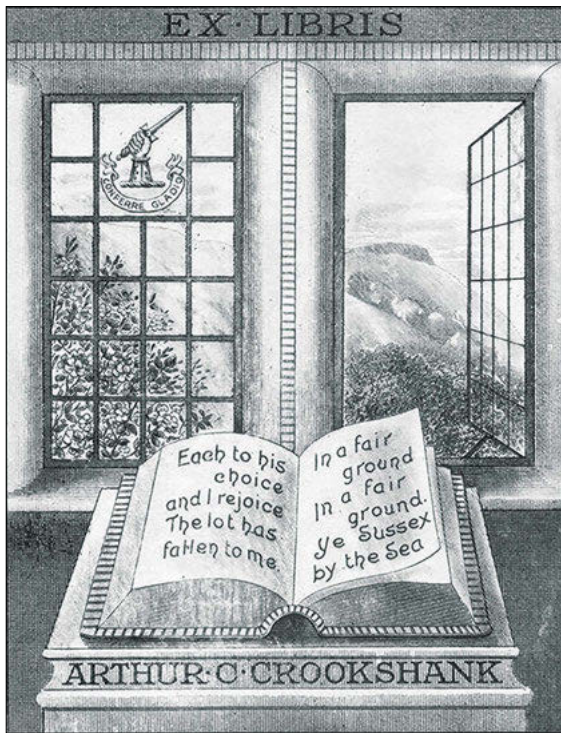 EX·LIBRIS
CONFERRE GLADIO
Each to his
choice
and I rejoice
The lot has
fallen to me.
In a fair
ground
In a fair
ground.
Ye Sussex
by the Sea
ARTHUR·C·CROOKSHANK